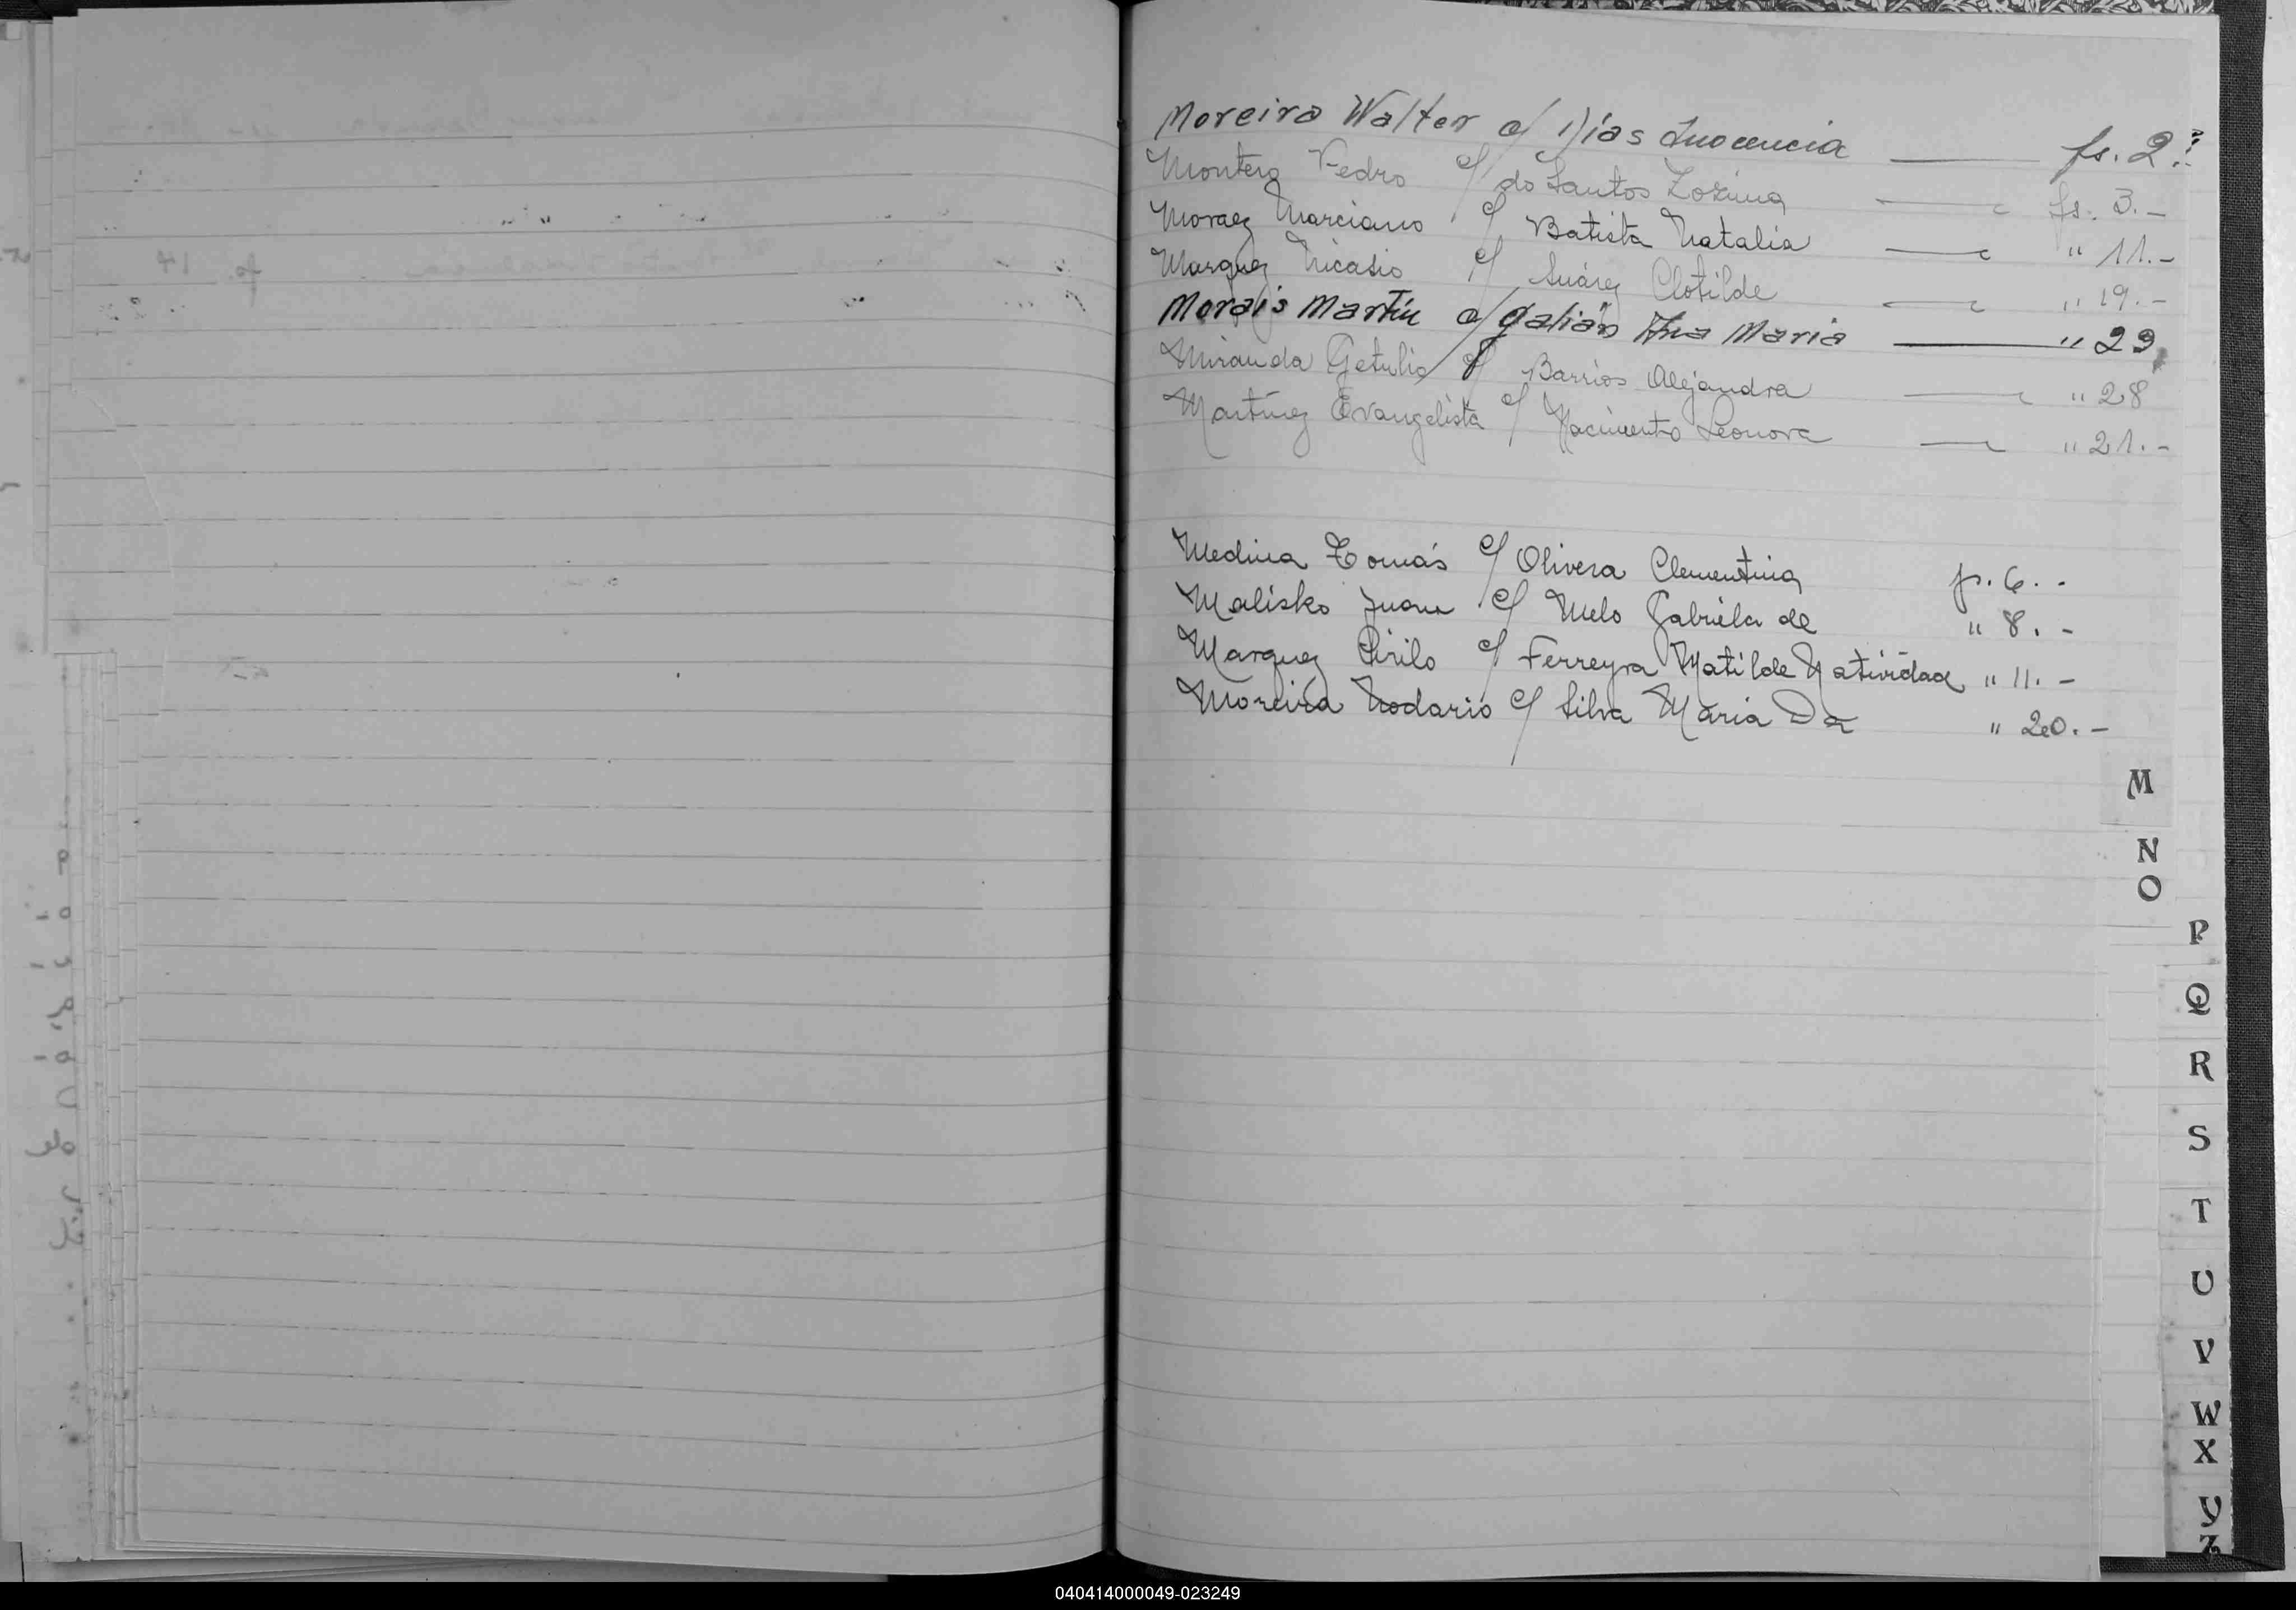 Moreira Walter c/ Días Inocencia — fs. 2.
Montero Pedro c/ do Santos Zozima — fs. 3.-
Moraez Marciano c/ Batista Natalia — " 11.-
Marquez Nicasio c/ Suárez Clotilde — " 19.-
Morais Martín c/ Galián Ana Maria — " 29
Miranda Getulio c/ Barrios Alejandra — " 28
Martínez Evangelista c/ Nacimento Leonora — " 21.-
Medina Tomás c/ Olivera Clementina f. 6.-
Malisko Juan c/ Melo Gabriela de " 8.-
Marquez Cirilo c/ Ferreyra Matilde Natividad " 11.-
Moreira Nodario c/ Silva Maria Da " 20.-
M
N
O
P
Q
R
S
T
U
V
W
X
Y
Z
040414000049-023249